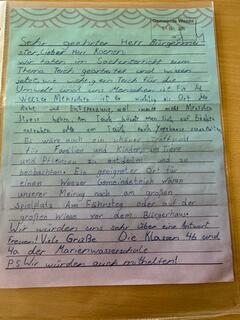 Gemeinde Weeze
Sehr geehrter Herr Bürgermei
ster, Lieber Herr Koenen.
wir haben im Sachunterricht zum
Thema Teich gearbeitet und wissen
jetzt, wie wichtig ein Teich für die
Umwelt und uns Menschen ist. Für die
Weezer Menschen ist es wichtig an die
Ruhe und Entspannung weil immer mehr Menschen
haben. Am Teich könnte Man sich auf Bänken
ausruhen oder am Teich
Es wäre auch ein schöner
für Familien und Kinder, um Tiere
und Pflanzen zu entdecken und zu
beobachten. Ein geeigneter Ort für
einen Weezer Gemeindeteich wären
unserer Meinug nach am großen
Spielplatz Am Fährsteg oder auf der
großen Wiese vor dem Bürgerhaus.
Wir würden uns sehr über eine Antwort
freuen! Viele Grüße Die Klassen 4b und
4a der Marienwasserschule
P.S. Wir würden auch mithelfen!